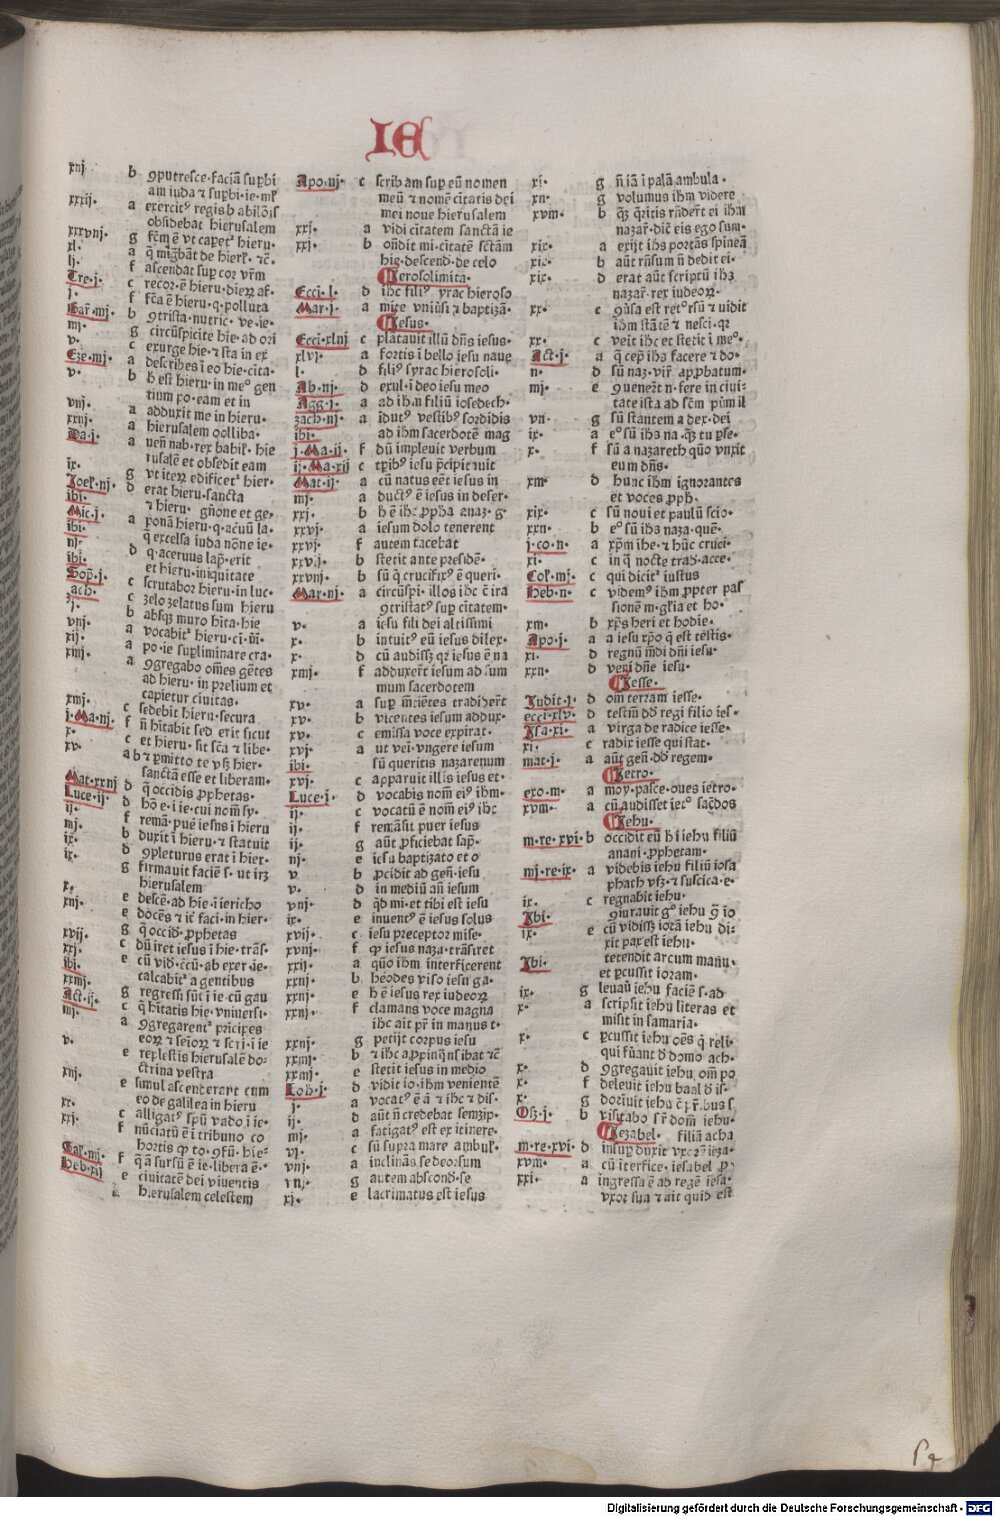 IE
b ꝯputresce·faciā supbi
am iuda ⁊ supbi·ie·
xxxij· a exercitꝰ regis babilōis
obsidebat hierusalem
g fcm̄ ē vt caperet᷑ hieru·
xl· a
lj· f ascendat sup cor vr̄m
Tre·j· c recor·ē hieru·
j· f fc̄a ē hieru·q·polluta
b ꝯtrista·nutric·ve·ie·
g circūspicite hie·ad ori
v· c exurge hie·⁊ sta in ex
Eze·mj· a describes ī eo hie·cita·
v· b h̄ est hieru·in meº gen
tium po·eam et in
vnj· a adduxit me in hieru·
xxnj· a hierusalem oolliba·
Da·j· a uen̄ nab·rex babil·hie
rusalē et obsedit eam
ix· g vt iteꝝ edificet᷑ hier·
Joel·nj· d erat hieru·sancta
ibi· ⁊ hieru·
Mic·j· a ponā hieru·q·acūū la·
ibi· q̄ excelsa iuda nōne ie·
nj· d q·aceruus lap·erit
ibi· et hieru·iniquitate
Sop·j· c scrutabor hieru·in luc·
zach· c zelo zelatus sum hieru
j· b absqꝫ muro hita·hie
vnj· a vocabit᷑ hieru·
xij· a po·ie supliminare cra·
xmj· a ꝯgregabo om̄es gētes
ad hieru·in prelium et
capietur ciuitas·
xmj· c sedebit hieru·secura
j·Ma·nj· f n̄ hitabit sed erit sicut
x· c et hieru·sit scā ⁊ libe·
xv· a b ⁊ pmitto te vsꝫ hier·
sanctā esse et liberam·
Mat·xxnj d q̄ occidis ꝓphetas·
Luce·ij· d hō e·ī ie·cui nom̄ sy·
ij· f remā·puē iesus ī hieru
mj· b duxit ī hieru·⁊ statuit
ix· d ꝯpleturus erat ī hier·
ix· g firmauit faciē s·ut irꝫ
hierusalem
x· e descē·ad hie·ī iericho
xnj· e docēs ⁊ it̄ faci·in hier·
xvij· g q̄ occid·ꝓphetas
xxj· c dū iret iesus ī hie·trās·
ibi· e cū vid·ccū·ab exer·ie·
xxmj· calcabit᷑ a gentibus
Act·ij· g regressi sūt ī ie·cū gau
mj· c q̄ hitatis hie·vniuersi·
a ꝯgregarent᷑ pricipes
v· eoꝝ ⁊ seīoꝝ ⁊ scri·ī ie
e replestis hierusalē do·
xnj· ctrina vestra
e simul ascenderant cum
xx· eo de galilea in hieru
xxj· c alligatꝰ spū vado ī ie·
f nūciatū ē ī tribuno co
hortis ꝙ to·ꝯfū·hie·
Gal·mj· f q̄ ā sursū ē ie·libera ē·
Heb·xij e ciuitatē dei viuentis
hierusalem celestem
Apo·nj· c scribam sup eū nomen
meū ⁊ nomē citatis dei
mei noue hierusalem
xxj· a vidi citatem sanctā ie
xxj· b ondit mi·citatē sctām
hie·descend·de celo
Ierosolimita·
Ecci·l· d ihc filiꝰ yrac hieroso
Mar·j· a mire vniūsi ⁊ baptizā·
Iesus·
Ecci·xlnj c platauit illū dn̄s iesus·
xlvj· a fortis ī bello iesu naue
l· d filiꝰ syrac hierosoli·
Ab·nj· d exul·ī deo iesu meo
Agg·j· a ad ih·n filiū iosedech·
zach·nj· a īdutꝰ vestibꝰ sordidis
ibi· ad ihm sacerdotē mag
j·Ma·ij· f dū impleuit verbum
ij·Ma·xij c tribꝰ iesu pcipit ruit
Mat·ij· a cū natus eēt iesus in
mj· a ductꝰ ē iesus in deser·
xxj· b h̄ ē ihc ꝓpha anaz·g·
xxvj· a iesum dolo tenerent
xxvj· f autem tacebat
xxvj· b stetit ante presidē·
xxvnj· b sū q̄ crucifixꝰ ē queri·
Mar·nj· a circūspi·illos ihc c̄ ira
ꝯtristatꝰ sup citatem·
v· a iesu fili dei altissimi
x· b intuitꝰ eū iesus dilex·
x· d cū audissꝫ qꝛ iesus ē na
xmj· f adduxert iesum ad sum
mum sacerdotem
xv· a sup m̄iētes tradiderūt
xv· b vicentes iesum addux·
xv· c emissa voce expirat·
xvj· a ut veī·vngere iesum
ibi· sū queritis nazarenum
xvj· c apparuit illis iesus et·
Luce·j· d vocabis nom̄ eiꝰ ihm·
ij· c vocatū ē nom̄ eiꝰ ihc
ij· f remāsit puer iesus
ij· g aūt ꝓficiebat sap·
nj· e iesu baptizato et o
v b ꝓcidit ad gen·iesu
v· d in mediū an̄ iesum
vnj· d qd̄ mi·et tibi est iesu
ix· e inuentꝰ ē iesus solus
xvij· c iesu preceptor mise·
xvnj· f ꝙ iesus naza·trāsiret
xxij· a quō ihm interficerent
xxnj· b heodes viso iesu ga·
xxnj· e h̄ ē iesus rex iudeoꝝ
xxnj· f clamans voce magna
ihc ait pr̄ in manus t·
xxnj· g petijt corpus iesu
xxmj· b ⁊ ihc appinqns ibat ⁊c̄
xxmj· e stetit iesus in medio
Joh·j· d vidit io·ihm venientē
j· a vocatꝰ ē ā ⁊ ihc ⁊ dis·
ij· d aūt n̄ credebat semꝫip·
mj· a fatigatꝰ est ex itinere·
vj· c sū supra mare ambul·
vnj· a inclināsse deorsum
vnj· g autem abscond·se
xj· e lacrimatus est iesus
xi· g n̄ iā ī palā ambula·
xn· g volumus ihm videre
xvm· b qꝫ q̄ritis rn̄dert ei ihm
nazar̄·dic̄ eis ego sum·
xix· a exijt ihs portās spineā
xix· b aūt rn̄sum n̄ dedit ei·
xix· d erat aūt scriptū ihꝫ
nazar·rex iudeoꝝ·
xx· c ꝯūsa est ret᷑rsū ⁊ uidit
ihm stātē ⁊ nesci·qꝛ
xx· c veīt ihc et stetit ī meº·
Act·j· a q̄ cep̄ ihs facere ⁊ do·
n· d sū naz·vir̄ apꝓbatum·
mj· e ꝯuenert n·fere in ciui·
tate ista ad scm̄ pūm il
vn· g sū stantem a dex·dei
ix· a eº sū ihs na·qꝫ tu pse·
x· f sū a nazareth quō vnxit
eum dn̄s·
xm· d hunc ihm ignorantes
et voces ꝓph·
xix· c sū noui et paulū scio·
xxn· b eº sū ihs naza·quē·
j·co·n· a xpm ihe·⁊ hūc cruci·
xi· c in q̄ nocte trad·acce·
Col·mj· c qui dicit᷑ iustus
Heb·n· c videmꝰ ihm ꝓpter pas
sionē m·glia et ho·
xm· b xps heri et hodie·
Apo·j· a a iesu xpo q̄ est testis·
xi· d regnū mūdi dn̄i iesu·
xxn· d veni dn̄e iesu·
Iesse·
Judit·j· d om̄ terram iesse·
ecci·xlv· d testm̄ dd̄ regi filio ies·
Ysa·xi· a virga de radice iesse·
xi· c radix iesse qui stat·
mat·j· a aūt gen̄·dd̄ regem·
Ietro·
exo·m· a moy·pasce·oues ietro·
xvm· a cū audisset ietº sacdos
Iehu·
m·re·xvi· b occidit eū h̄ ī iehu filiū
anani·ꝓphetam·
mj·re·ix· a videbis iehu filiū iosa
phath vsꝫ·⁊ suscita·e·
ix· c regnabit iehu·
Ybi· ꝯiurauit gº iehu ꝯ̄ io
ix· e cū vidissꝫ iorā iehu di·
xit pax est iehu·
Ybi· tetendit arcum manu·
et pcussit ioram·
ix· g leuaūt iehu faciē s·ad
x· a scripsit iehu literas et
misit in samaria·
x· c pcussit iehu oēs q̄ reli·
qui fūant d̄ domo ach·
x· d ꝯgregauit iehu om̄ po
x· f deleuit iehu baal d̄ is·
x· g dormiuit iehu c̄ pr̄·bus s
Osz·j· b visitabo sr̄ dom̄ iehu·
Iezabel· filiā acha
m·re·xvi· d insup duxit vxorē ieza·
xvm· a cū īterfice·iesabel ꝓ
xxi· a ingressa ē ad regē iesa·
vxor sua ⁊ ait quid est
Digitalisierung gefördert durch die Deutsche Forschungsgemeinschaft · DFG